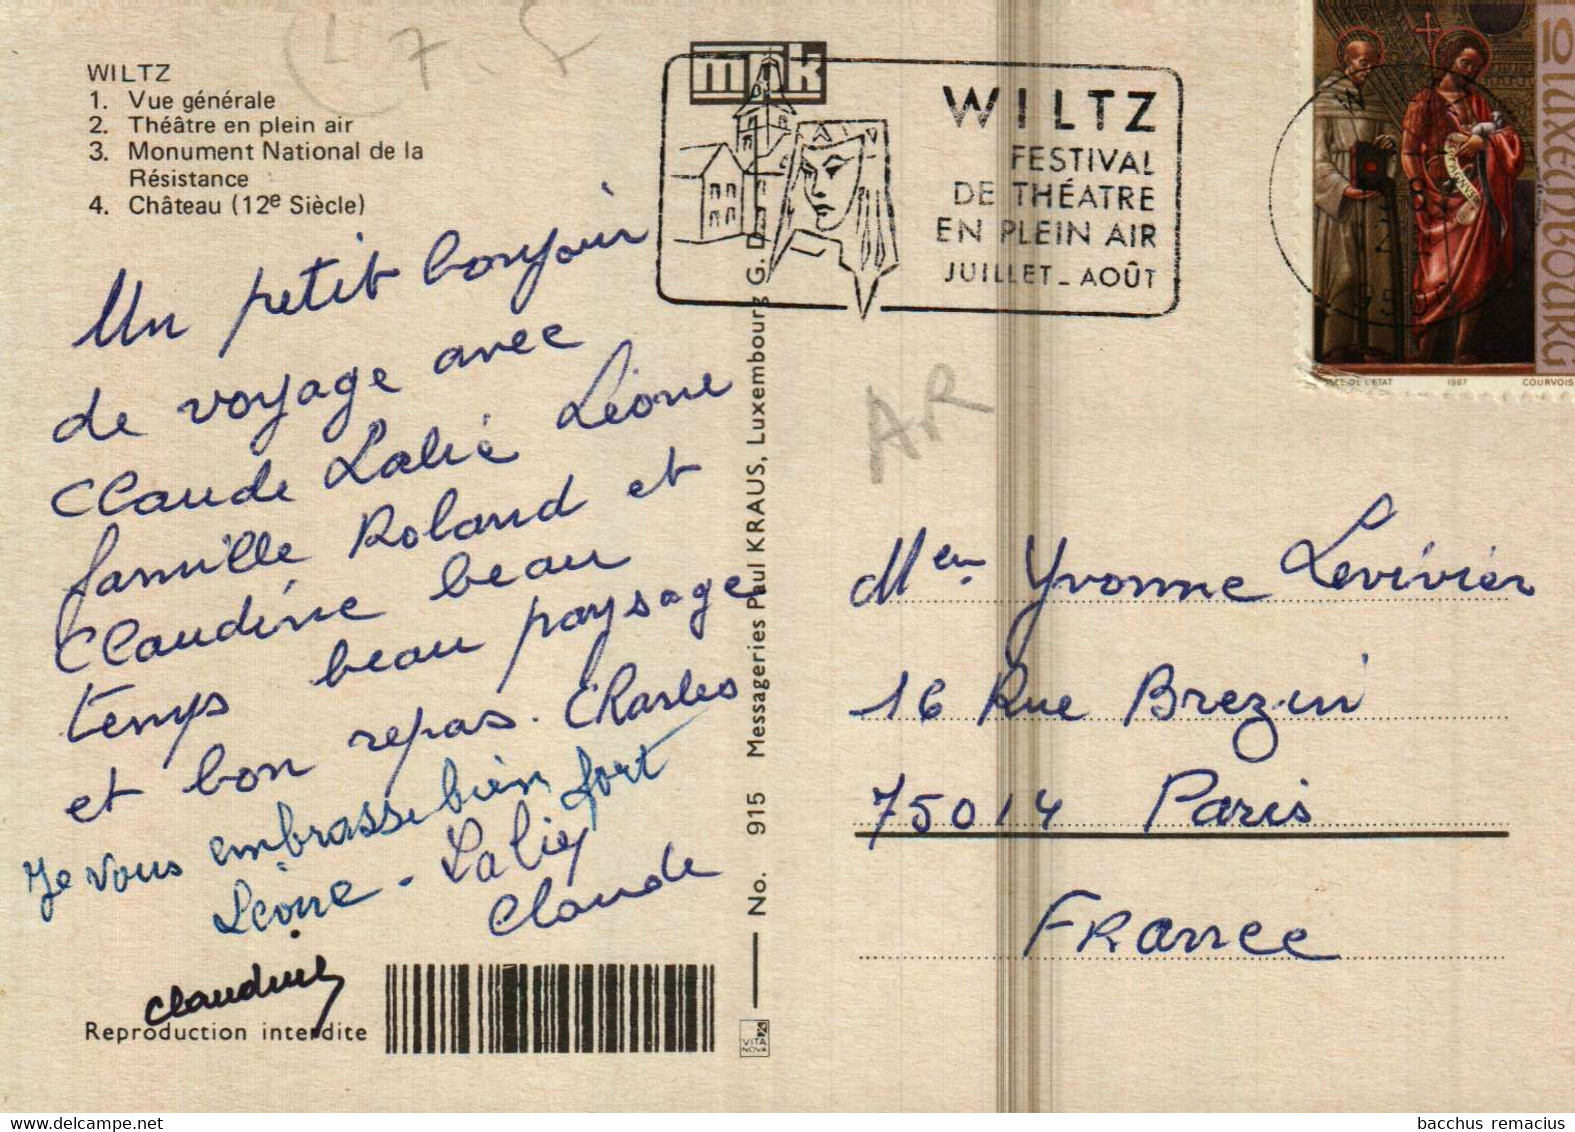 WILTZ
1. Vue générale
2. Théâtre en plein air
3. Monument National de la
Résistance
4. Château (12e Siècle)
Un petit bonjour
de voyage avec
Claude Lalie Léone
famille Roland et
Claudine beau
temps beau paysage
et bon repas. Charles
Je vous embrasse bien fort
Léone - Laliey
Claude
Claudine
Reproduction interdite
No. 915 Messageries Paul KRAUS, Luxembourg G. D.
VITA
NOVA
mpk
WILTZ
FESTIVAL
DE THÉATRE
EN PLEIN AIR
JUILLET_AOÛT
10 LUXEMBOURG
1987
COURVOIS
AR
Yvonne Levivier
16 Rue Brezin
75014 Paris
France
bacchus remacius